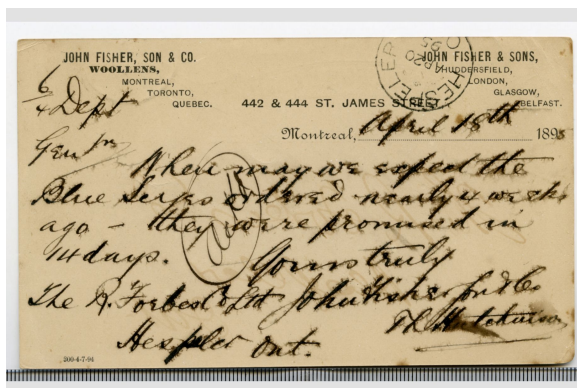 JOHN FISHER, SON & CO.
WOOLLENS,
MONTREAL,
TORONTO,
QUEBEC.
JOHN FISHER & SONS,
HUDDERSFIELD,
LONDON,
GLASGOW,
BELFAST.
442 & 444 ST. JAMES STREET.
HESPELER
AP 20
95
6/4 Dept
Montreal, April 18th 1895
Gentn
When may we expect the
Blue Serges ordered nearly 4 weeks
ago - they were promised in
14 days. Yours truly
The R. Forbes Co Ltd John Fisher Son & Co
Hespeler Ont. Hutchinson
300-4-7-94